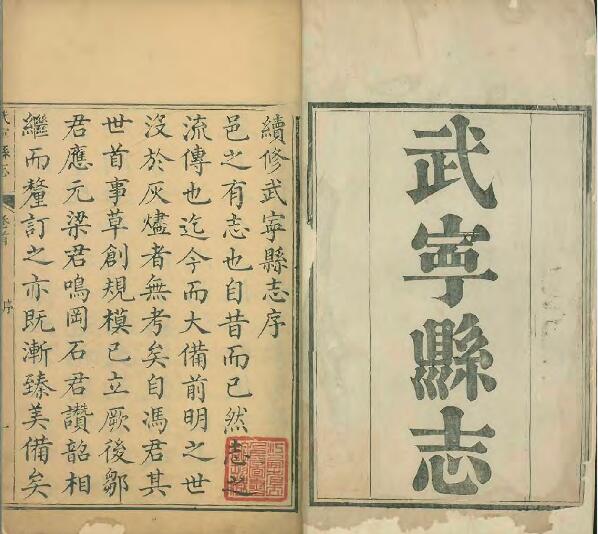 武寧縣志
續修武寧縣志序
邑之有志也自昔而已然志之
流傳也迄今而大備前明之世
沒於灰燼者無考矣自馮君其
世首事草創規模已立厥後鄒
君應元梁君鳴岡石君讚韶相
繼而釐訂之亦既漸臻美備矣
武寧縣志
卷首
序
一